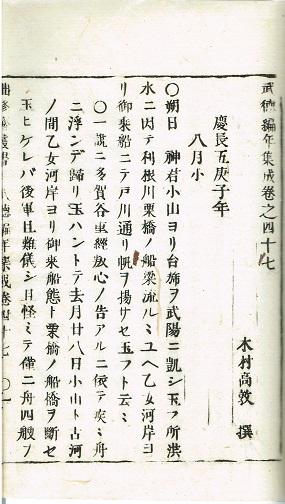 武德編年集成卷之四十七
木村高敦 撰
慶長五庚子年
八月小
〇朔日 神君小山ヨリ台旆ヲ武陽ニ凱シ玉フ所洪
水ニ因テ利根川栗橋ノ船梁流ルヽユヘ乙女河岸ヨ
リ御乗船ニテ戸川通リ帆ヲ揚サセ玉フト云ミ
〇一説ニ多賀谷重經放心ノ告アルニ依テ疾ミ舟
ニ浮ンテ歸リ玉ハントテ去月廿八日小山ト古河
ノ間乙女河岸ヨリ御乗船態ト栗橋ノ船橋ヲ斷セ
玉ヒケレバ後軍且難儀シ且怪ミテ僅ニ舟四艘ヲ